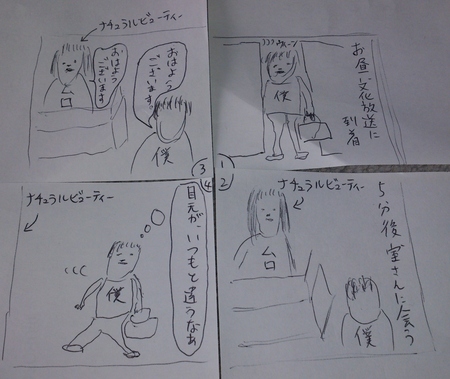 1
お昼、文化放送に
到着
ウィーン
僕
2
5分後室さんに会う
ナチュラルビューティー
ムロ
僕
3
ナチュラルビューティー
おはよう
ございます
僕
おはよう
ございます
ムロ
4
目元が、いつもと違うなあ
僕
ナチュラルビューティー